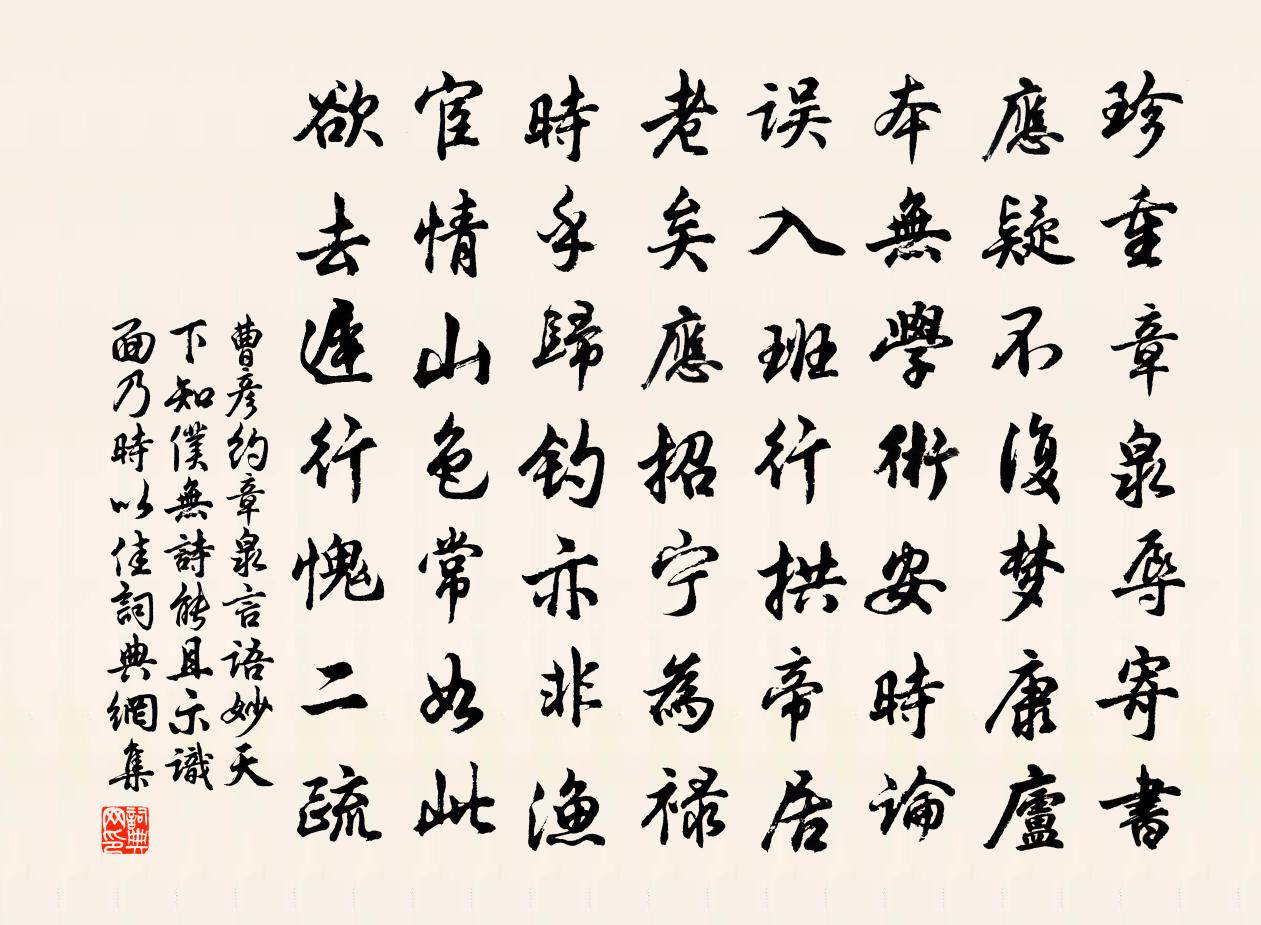 珍重章泉辱寄書
應疑不復梦康廬
本無學術安時論
误入班行拱帝居
老矣應招宁為禄
時乎歸钓亦非漁
宦情山色常如此
欲去遲行愧二疏
曹彦約章泉言語妙天
下知僕無詩能且示識
面乃時以佳詞典網集
詞典網印